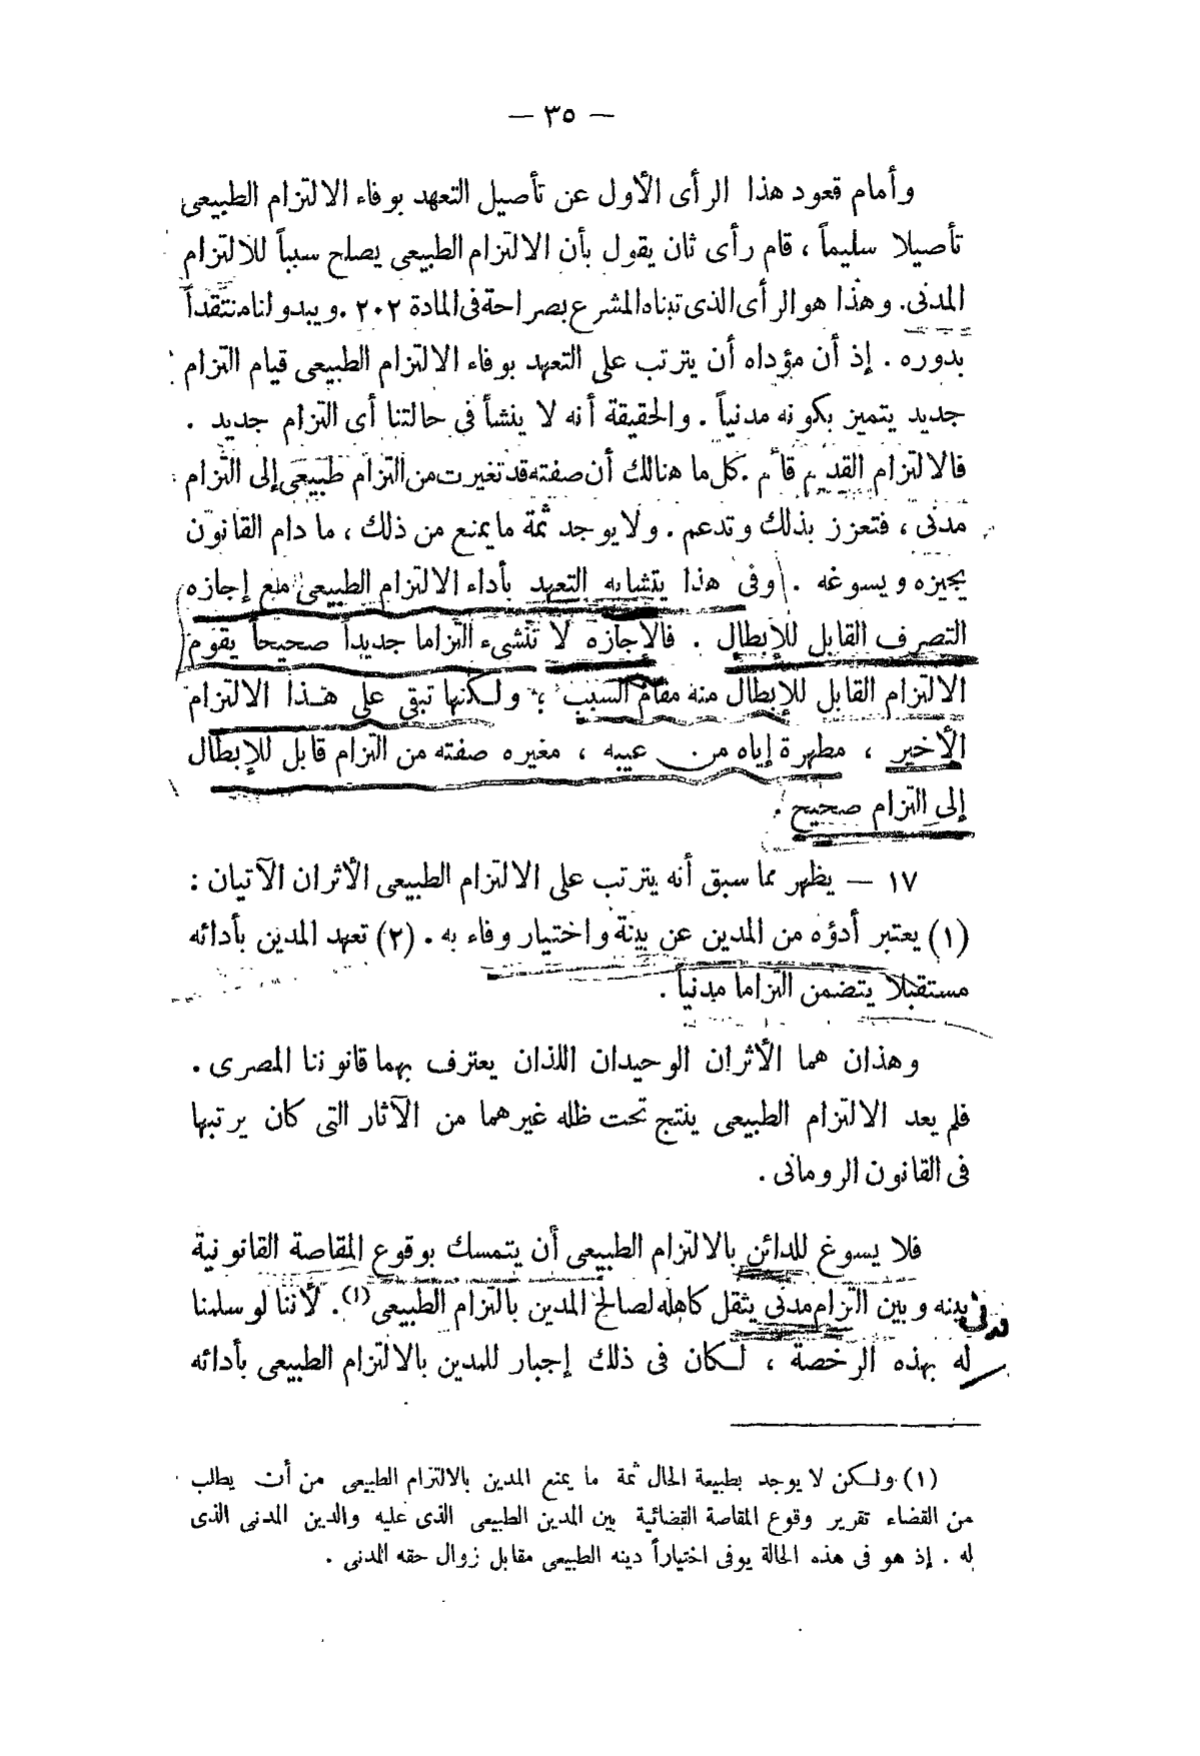 — ٣٥ —
وأمام قعود هذا الرأى الأول عن تأصيل التعهد بوفاء الالتزام الطبيعى
تأصيلا سليماً ، قام رأى ثان يقول بأن الالتزام الطبيعى يصلح سبباً للالتزام
المدنى. وهذا هو الرأى الذى تبناه المشرع بصراحة فى المادة ٢٠٢ . ويبدو لنا منتقداً
بدوره . إذ أن مؤداه أن يترتب على التعهد بوفاء الالتزام الطبيعى قيام التزام
جديد يتميز بكونه مدنياً . والحقيقة أنه لا ينشأ فى حالتنا أى التزام جديد .
فالالتزام القديم قائم . كل ما هنالك أن صفته قد تغيرت من التزام طبيعى إلى التزام
مدنى ، فتعزز بذلك وتدعم . ولا يوجد ثمة ما يمنع من ذلك ، ما دام القانون
يجيزه ويسوغه . وفى هذا يتشابه التعهد بأداء الالتزام الطبيعى مع إجازه
التصرف القابل للإبطال . فالإجازه لا تنشىء التزاما جديداً صحيحاً يقوم
الالتزام القابل للإبطال منه مقام السبب ؛ ولكنها تبقى على هذا الالتزام
الأخير ، مطهرة إياه من عيبه ، مغيره صفته من التزام قابل للإبطال
إلى التزام صحيح .
١٧ — يظهر مما سبق أنه يترتب على الالتزام الطبيعى الأثران الآتيان :
(١) يعتبر أدؤه من المدين عن بينة واختيار وفاء به . (٢) تعهد المدين بأدائه
مستقبلا يتضمن التزاما مدنياً .
وهذان هما الأثران الوحيدان اللذان يعترف بهما قانوننا المصرى .
فلم يعد الالتزام الطبيعى ينتج تحت ظله غيرهما من الآثار التى كان يرتبها
فى القانون الرومانى .
فلا يسوغ للدائن بالالتزام الطبيعى أن يتمسك بوقوع المقاصة القانونية
بينه وبين التزام مدنى يثقل كاهله لصالح المدين بالتزام الطبيعى(١). لأننا لو سلمنا
له بهذه الرخصة ، لكان فى ذلك إجبار للمدين بالالتزام الطبيعى بأدائه
(١) ولكن لا يوجد بطبيعة الحال ثمة ما يمنع المدين بالالتزام الطبيعى من أن يطلب
من القضاء تقرير وقوع المقاصة القضائية بين المدين الطبيعى الذى عليه والدين المدنى الذى
له . إذ هو فى هذه الحالة يوفى اختياراً دينه الطبيعى مقابل زوال حقه المدنى .